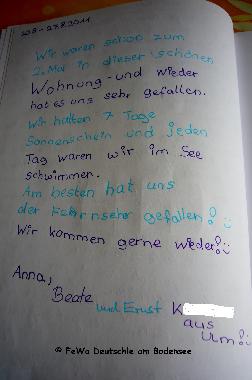 20.8-27.8.2011
Wir waren schon zum
2. Mal in dieser schönen
Wohnung - und wieder
hat es uns sehr gefallen.
Wir hatten 7 Tage
Sonnenschein und jeden
Tag waren wir im See
schwimmen.
Am besten hat uns
der Fehrnseher gefallen! :)
Wir kommen gerne wieder! :)
Anna,
Beate
und Ernst K
aus
Ulm! :)
© FeWo Deutschle am Bodensee